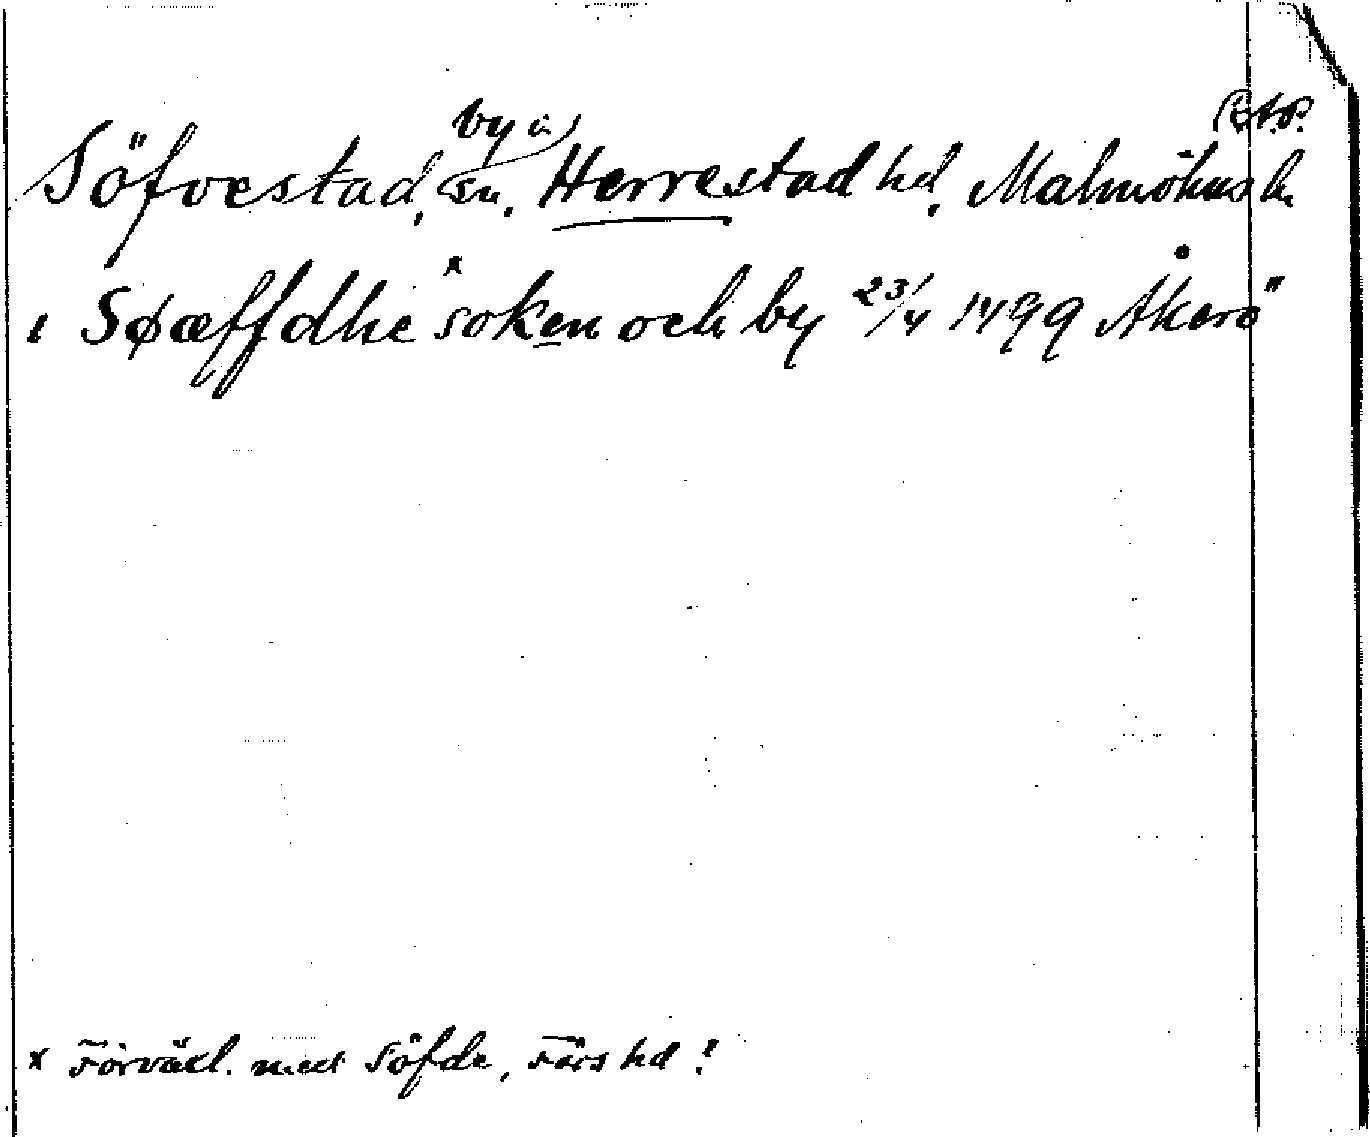 by i
Söfvestad, sn. Herrestad hd, Malmöhus ln
i Søæffdhe x soken och by 23/4 1499 Åkerö
x Förväxl. med Söfde, Färs hd!